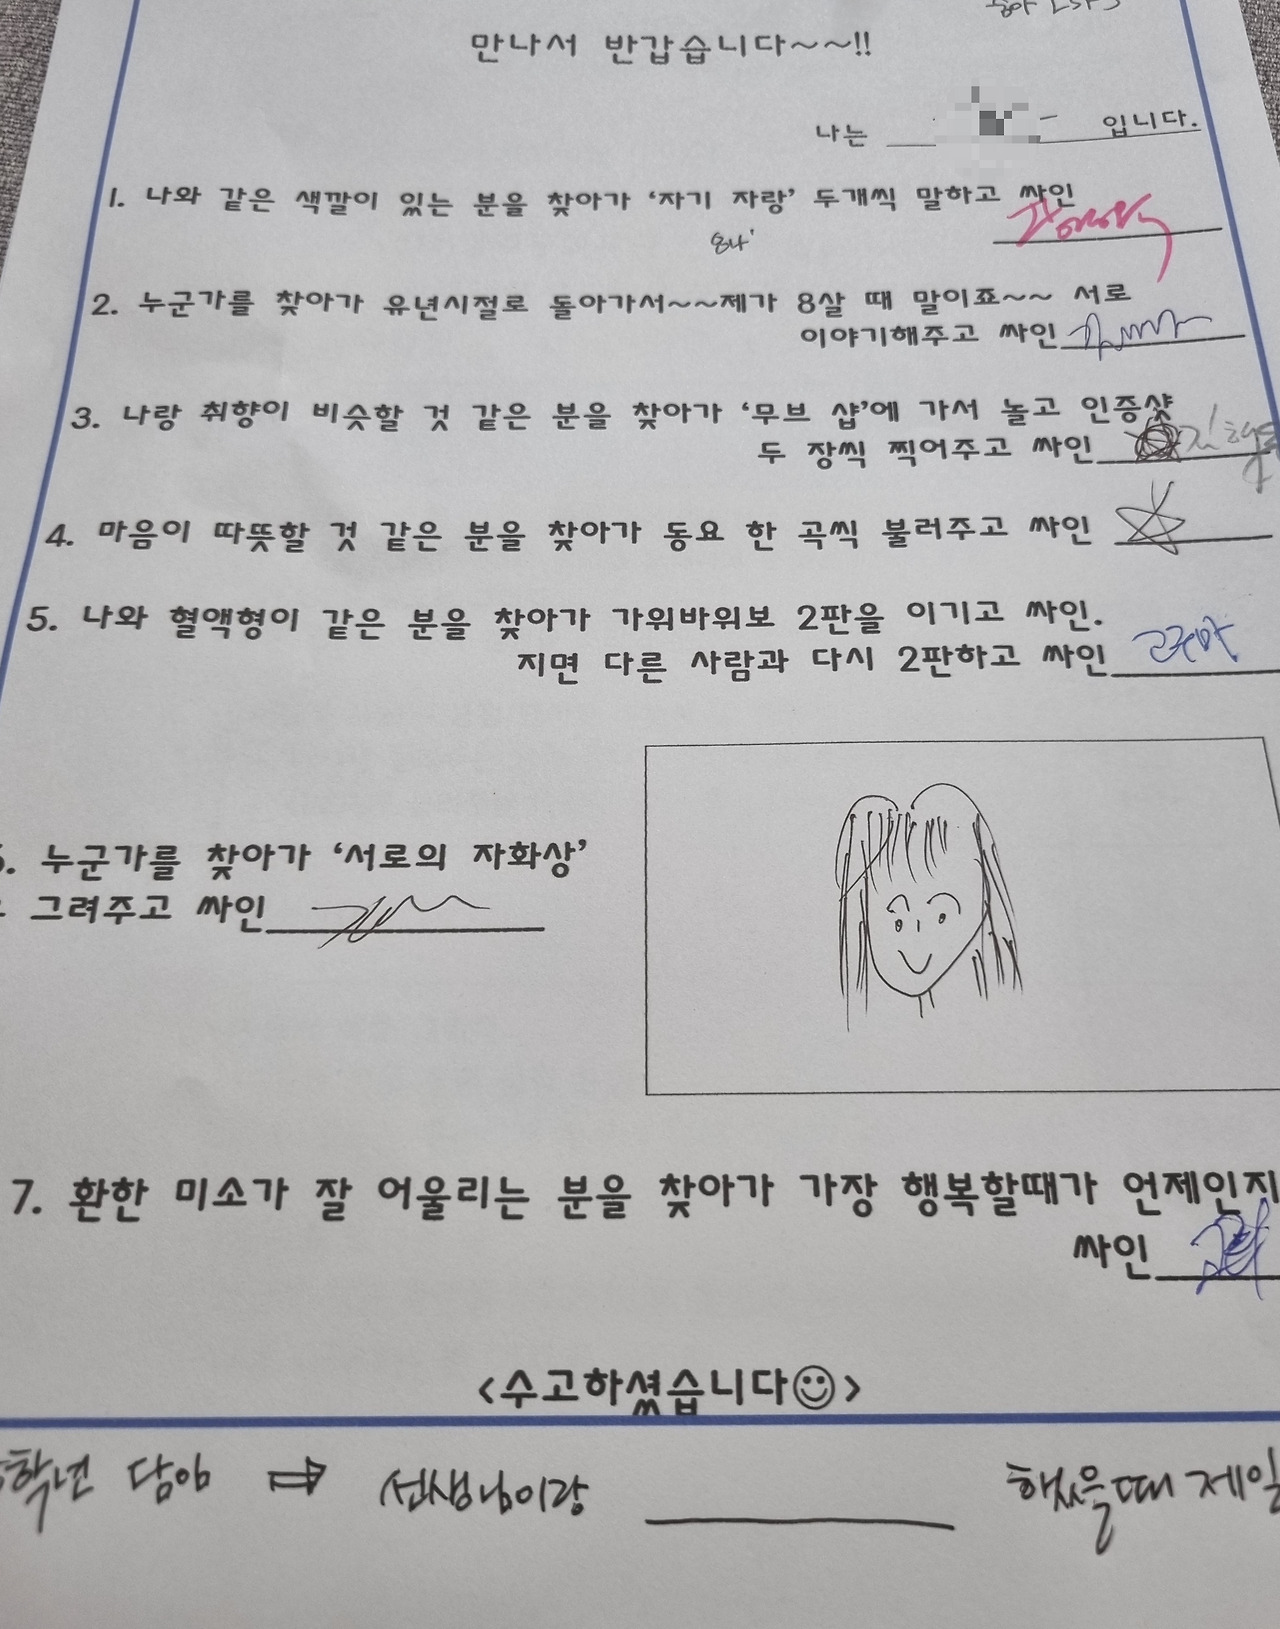 만나서 반갑습니다~~!!
나는 입니다.
1. 나와 같은 색깔이 있는 분을 찾아가 '자기 자랑' 두개씩 말하고 싸인
2. 누군가를 찾아가 유년시절로 돌아가서~~제가 8살 때 말이죠~~ 서로
이야기해주고 싸인
3. 나랑 취향이 비슷할 것 같은 분을 찾아가 '무브 샵'에 가서 놀고 인증샷
두 장씩 찍어주고 싸인
4. 마음이 따뜻할 것 같은 분을 찾아가 동요 한 곡씩 불러주고 싸인
5. 나와 혈액형이 같은 분을 찾아가 가위바위보 2판을 이기고 싸인.
지면 다른 사람과 다시 2판하고 싸인
6. 누군가를 찾아가 '서로의 자화상'
그려주고 싸인
7. 환한 미소가 잘 어울리는 분을 찾아가 가장 행복할때가 언제인지
싸인
<수고하셨습니다☺>
학년 담임 ⇨ 선생님이랑 했을때 제일